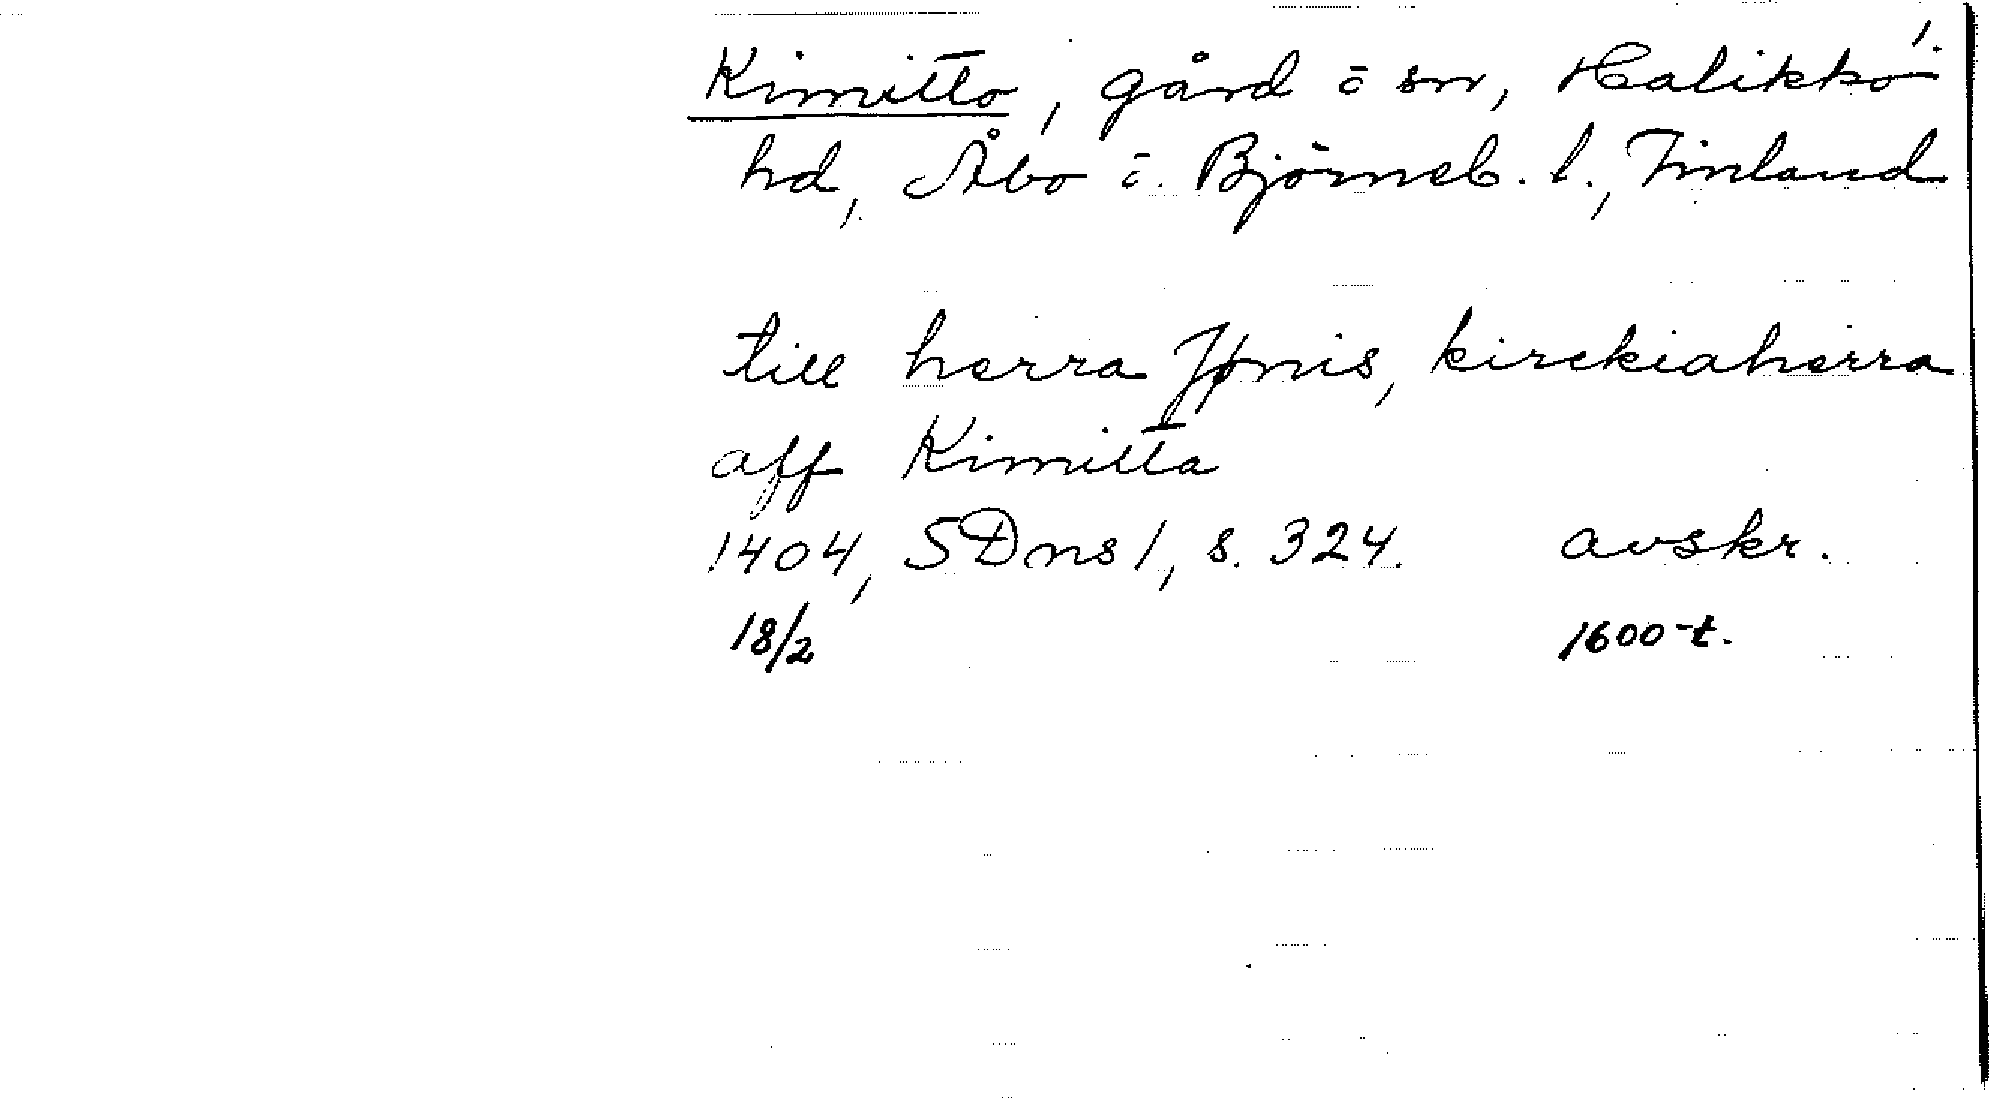 1.
Kimitto, gård o sn, Halikko
hd, Åbo o. Björneb. l., Finland
till herra Jønis, kirckiaherra
aff Kimitta
1404, SDns 1, s. 324. avskr.
18/2 1600-t.